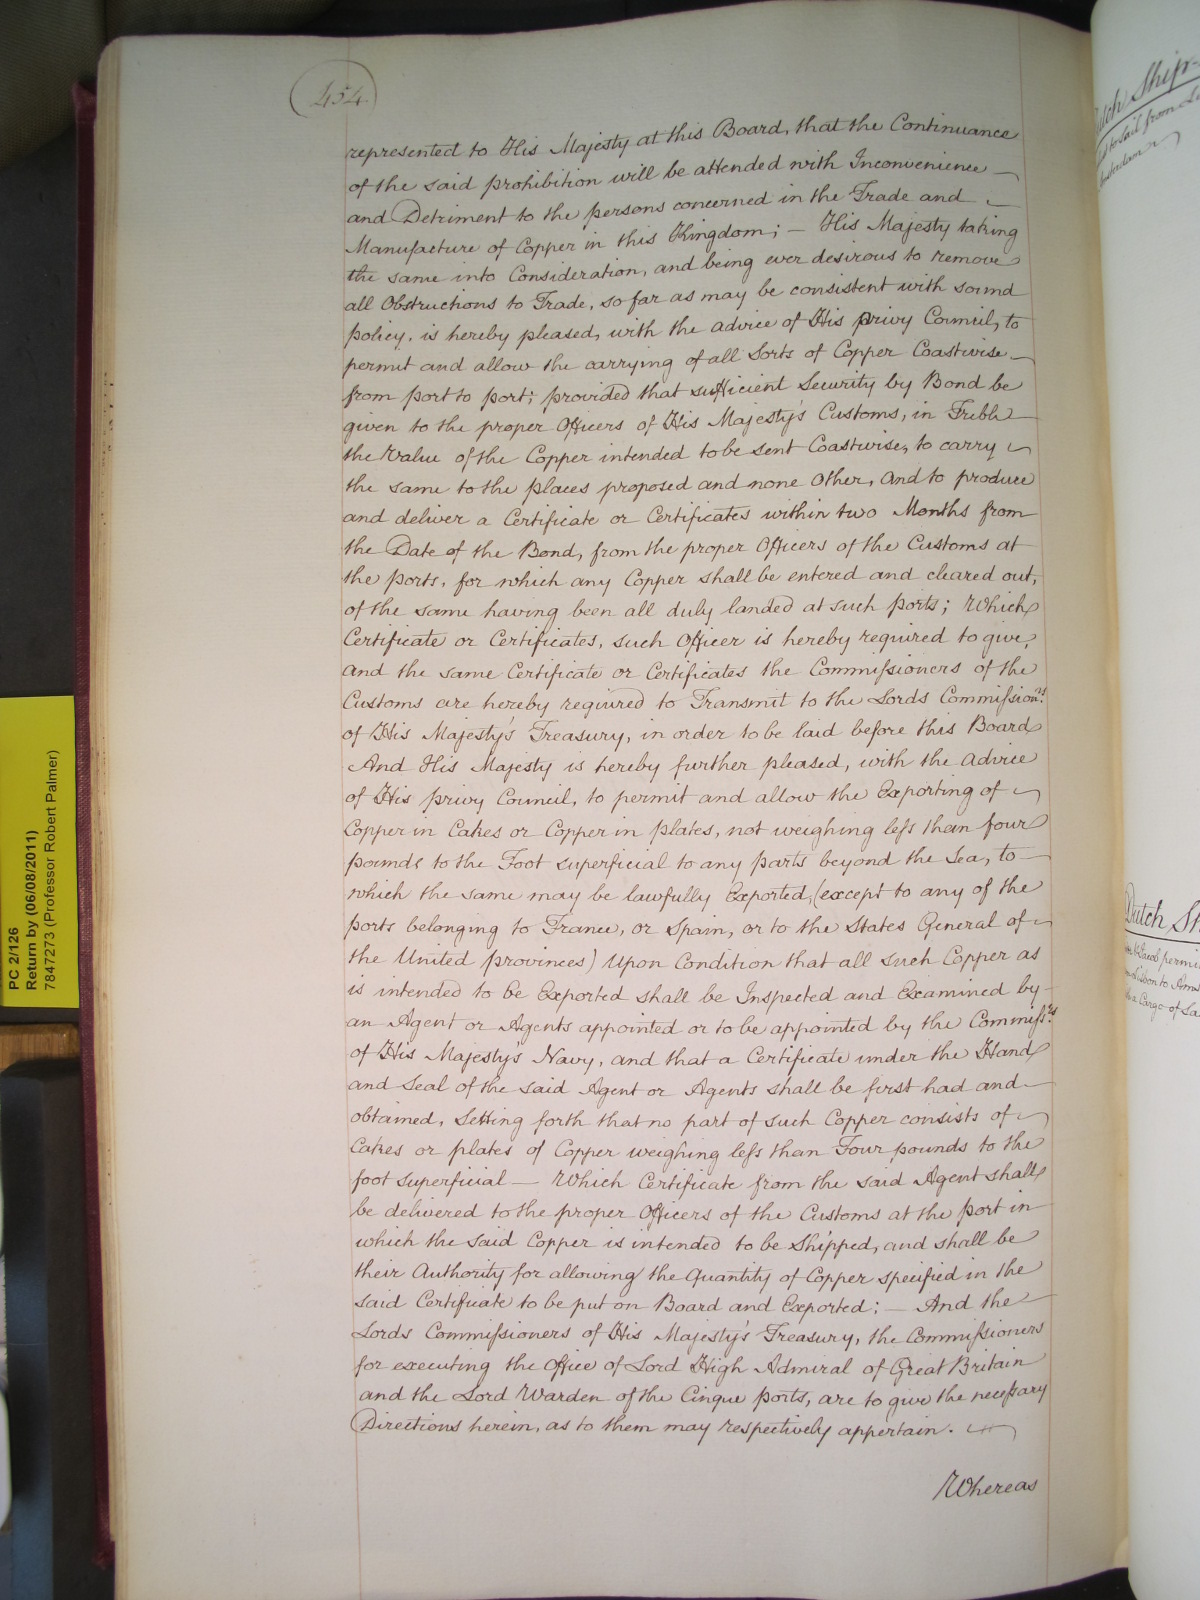 454
represented to His Majesty at this Board, that the Continuance
of the said prohibition will be attended with Inconvenience
and Detriment to the persons concerned in the Trade and
Manufacture of Copper in this Kingdom; — His Majesty taking
the same into Consideration, and being ever desirous to remove
all Obstructions to Trade, so far as may be consistent with sound
policy, is hereby pleased, with the advice of His privy Council, to
permit and allow the carrying of all Sorts of Copper Coastwise
from port to port; provided that sufficient Security by Bond be
given to the proper Officers of His Majesty's Customs, in Treble
the Value of the Copper intended to be sent Coastwise, to carry
the same to the places proposed and none other, And to produce
and deliver a Certificate or Certificates within two Months from
the Date of the Bond, from the proper Officers of the Customs at
the ports, for which any Copper shall be entered and cleared out,
of the same having been all duly landed at such ports; Which
Certificate or Certificates, such Officer is hereby required to give,
and the same Certificate or Certificates the Commissioners of the
Customs are hereby required to Transmit to the Lords Commission.rs
of His Majesty's Treasury, in order to be laid before this Board
And His Majesty is hereby further pleased, with the advice
of His privy Council, to permit and allow the Exporting of
Copper in Cakes or Copper in plates, not weighing less than four
pounds to the Foot superficial to any parts beyond the Sea, to
which the same may be lawfully Exported, (except to any of the
ports belonging to France, or Spain, or to the States General of
the United provinces) Upon Condition that all such Copper as
is intended to be Exported shall be Inspected and Examined by
an Agent or Agents appointed or to be appointed by the Commiss.rs
of His Majesty's Navy, and that a Certificate under the Hand
and Seal of the said Agent or Agents shall be first had and
obtained, setting forth that no part of such Copper consists of
Cakes or plates of Copper weighing less than Four pounds to the
foot superficial — Which Certificate from the said Agent shall
be delivered to the proper Officers of the Customs at the port in
which the said Copper is intended to be Shipped, and shall be
their Authority for allowing the Quantity of Copper specified in the
said Certificate to be put on Board and Exported; — And the
Lords Commissioners of His Majesty's Treasury, the Commissioners
for executing the Office of Lord High Admiral of Great Britain
and the Lord Warden of the Cinque ports, are to give the necessary
Directions herein, as to them may respectively appertain.
Whereas
PC 2/126
Return by (06/08/2011)
7847273 (Professor Robert Palmer)
Ship
to sail from
Dutch
permi
Lisbon to
a Cargo of